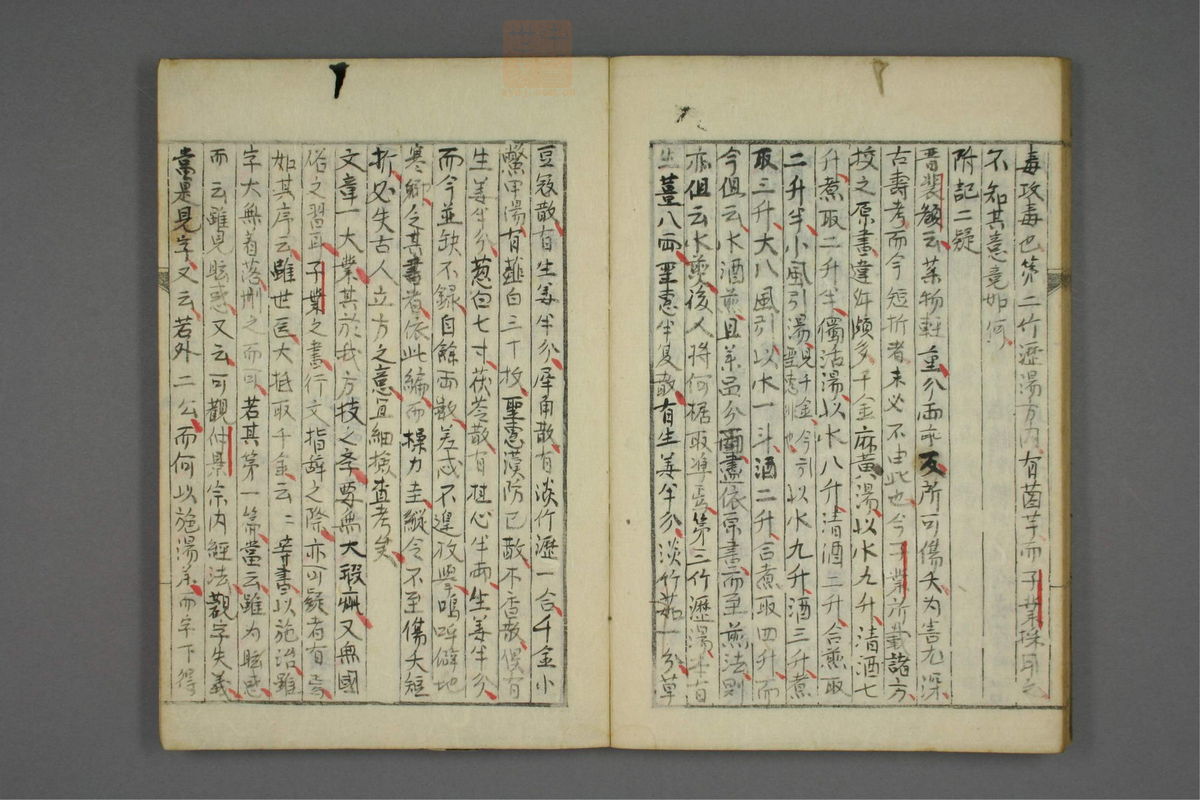 毒攻毒也第二竹瀝湯方内有茵芋而子業採耳云
不知其意竟如何
附記二疑
晋裴頠云藥物輕重分両乖互所可傷夭為害尤深
古壽考而今短折者未必不由此也今子業所載諸方
挍之原書違舛頗多千金麻黄湯以水九升清酒七
升煮取二升半獨活湯以水八升清酒二升合煎取
二升半小風引湯見千金聖恵今方以水九升酒三升煮
取三升大八風引以水一斗酒二升合煮取四升而
今但云水酒煎且薬品分両盡依原書而至煎法則
亦但云水煎後人将何据取準焉第三竹瀝湯本有
生薑八両聖恵半夏散有生姜半分淡竹茹一分草
豆蔲散有生姜半分犀角散有淡竹瀝一合千金小
鱉甲湯有薤白三十枚聖恵漢防已散不香散偎有
生姜半分葱白七寸茯苓散有根心半両生姜半分
而今並缺不録自餘両数差忒不遑放擧嗚呼僻地
寒郷之其書者依此編而操力圭縦令不至傷夭短
折必失古人立方之意宜細検査考矣
文章一大業其於我方技之卒要無大瑕疵又無國
俗之習耳子業之書行文指辞之際亦可疑者有焉
如其序云雖世医大抵取千金云二等書以施治雖
字大無着落刪之而可若其第一篇當云雖為眩惑
而云雖見眩惑又云可觀仲景宗内經法觀字失義
當是見字又云若外二公而何以施湯薬而字下得